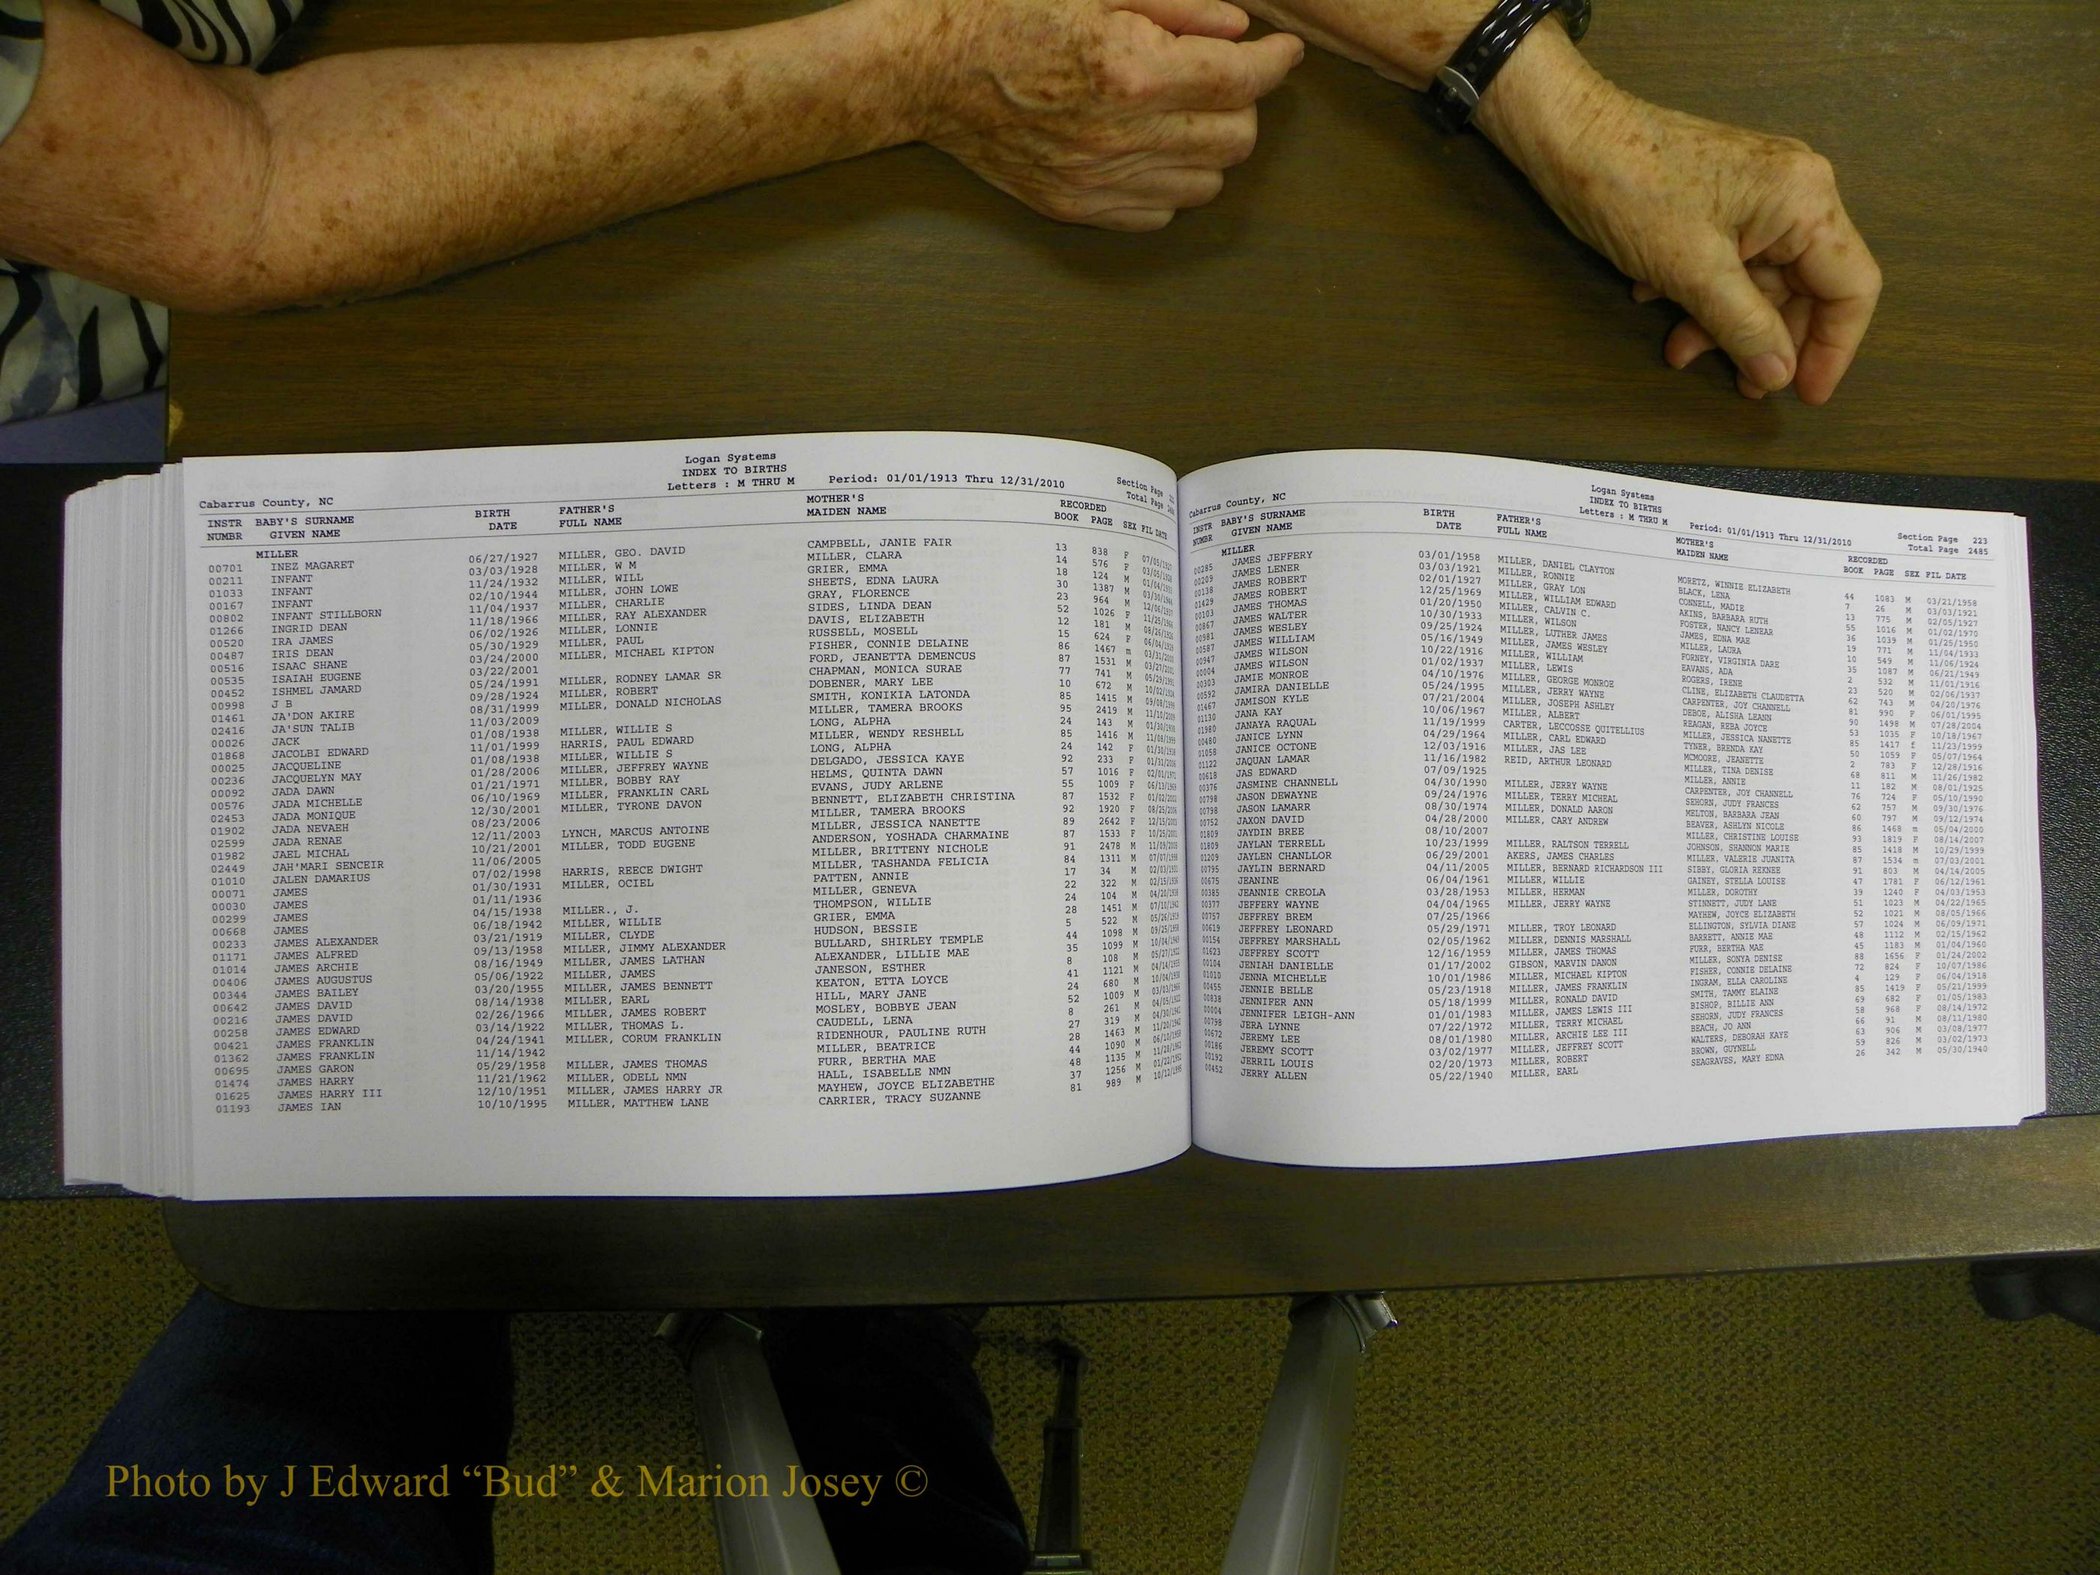 Logan Systems
INDEX TO BIRTHS
Letters : M THRU M Period: 01/01/1913 Thru 12/31/2010 Section Page
Cabarrus County, NC Total Page
INSTR BABY'S SURNAME BIRTH FATHER'S MOTHER'S RECORDED
NUMBR GIVEN NAME DATE FULL NAME MAIDEN NAME BOOK PAGE SEX FIL DATE
MILLER
00701 INEZ MAGARET 06/27/1927 MILLER, GEO. DAVID CAMPBELL, JANIE FAIR 13 838 F 07/05/1927
00211 INFANT 03/03/1928 MILLER, W M MILLER, CLARA 14 576 F
01033 INFANT 11/24/1932 MILLER, WILL GRIER, EMMA 18 124 M
00167 INFANT 02/10/1944 MILLER, JOHN LOWE SHEETS, EDNA LAURA 30 1387 M
00802 INFANT STILLBORN 11/04/1937 MILLER, CHARLIE GRAY, FLORENCE 23 964 M
01266 INGRID DEAN 11/18/1966 MILLER, RAY ALEXANDER SIDES, LINDA DEAN 52 1026 F
00520 IRA JAMES 06/02/1926 MILLER, LONNIE DAVIS, ELIZABETH 12 181 M
00487 IRIS DEAN 05/30/1929 MILLER, PAUL RUSSELL, MOSELL 15 624 F
00516 ISAAC SHANE 03/24/2000 MILLER, MICHAEL KIPTON FISHER, CONNIE DELAINE 86 1467 m
00535 ISAIAH EUGENE 03/22/2001 FORD, JEANETTA DEMENCUS 87 1531 M
00452 ISHMEL JAMARD 05/24/1991 MILLER, RODNEY LAMAR SR CHAPMAN, MONICA SURAE 77 741 M
00998 J B 09/28/1924 MILLER, ROBERT DOBENER, MARY LEE 10 672 M
01461 JA'DON AKIRE 08/31/1999 MILLER, DONALD NICHOLAS SMITH, KONIKIA LATONDA 85 1415 M
02416 JA'SUN TALIB 11/03/2009 MILLER, TAMERA BROOKS 95 2419 M
00026 JACK 01/08/1938 MILLER, WILLIE S LONG, ALPHA 24 143 M
01868 JACOLBI EDWARD 11/01/1999 HARRIS, PAUL EDWARD MILLER, WENDY RESHELL 85 1416 M
00025 JACQUELINE 01/08/1938 MILLER, WILLIE S LONG, ALPHA 24 142 F
00236 JACQUELYN MAY 01/28/2006 MILLER, JEFFREY WAYNE DELGADO, JESSICA KAYE 92 233 F
00092 JADA DAWN 01/21/1971 MILLER, BOBBY RAY HELMS, QUINTA DAWN 57 1016 F
00576 JADA MICHELLE 06/10/1969 MILLER, FRANKLIN CARL EVANS, JUDY ARLENE 55 1009 F
02453 JADA MONIQUE 12/30/2001 MILLER, TYRONE DAVON BENNETT, ELIZABETH CHRISTINA 87 1532 F
01902 JADA NEVAEH 08/23/2006 MILLER, TAMERA BROOKS 92 1920 F
02599 JADA RENAE 12/11/2003 LYNCH, MARCUS ANTOINE MILLER, JESSICA NANETTE 89 2642 F
01982 JAEL MICHAL 10/21/2001 MILLER, TODD EUGENE ANDERSON, YOSHADA CHARMAINE 87 1533 F
02449 JAH'MARI SENCEIR 11/06/2005 MILLER, BRITTENY NICHOLE 91 2478 M
01010 JALEN DAMARIUS 07/02/1998 HARRIS, REECE DWIGHT MILLER, TASHANDA FELICIA 84 1311 M
00071 JAMES 01/30/1931 MILLER, OCIEL PATTEN, ANNIE 17 34 M
00030 JAMES 01/11/1936 MILLER, GENEVA 22 322 M
00299 JAMES 04/15/1938 MILLER., J. THOMPSON, WILLIE 24 104 M
00668 JAMES 06/18/1942 MILLER, WILLIE GRIER, EMMA 28 1451 M
00233 JAMES ALEXANDER 03/21/1919 MILLER, CLYDE HUDSON, BESSIE 5 522 M
01171 JAMES ALFRED 09/13/1958 MILLER, JIMMY ALEXANDER BULLARD, SHIRLEY TEMPLE 44 1098 M
01014 JAMES ARCHIE 08/16/1949 MILLER, JAMES LATHAN ALEXANDER, LILLIE MAE 35 1099 M
00406 JAMES AUGUSTUS 05/06/1922 MILLER, JAMES JANESON, ESTHER 8 108 M
00344 JAMES BAILEY 03/20/1955 MILLER, JAMES BENNETT KEATON, ETTA LOYCE 41 1121 M
00642 JAMES DAVID 08/14/1938 MILLER, EARL HILL, MARY JANE 24 680 M
00216 JAMES DAVID 02/26/1966 MILLER, JAMES ROBERT MOSLEY, BOBBYE JEAN 52 1009 M
00258 JAMES EDWARD 03/14/1922 MILLER, THOMAS L. CAUDELL, LENA 8 261 M
00421 JAMES FRANKLIN 04/24/1941 MILLER, CORUM FRANKLIN RIDENHOUR, PAULINE RUTH 27 319 M
01362 JAMES FRANKLIN 11/14/1942 MILLER, BEATRICE 28 1463 M
00695 JAMES GARON 05/29/1958 MILLER, JAMES THOMAS FURR, BERTHA MAE 44 1090 M
01474 JAMES HARRY 11/21/1962 MILLER, ODELL NMN HALL, ISABELLE NMN 48 1135 M
01625 JAMES HARRY III 12/10/1951 MILLER, JAMES HARRY JR MAYHEW, JOYCE ELIZABETHE 37 1256 M
01193 JAMES IAN 10/10/1995 MILLER, MATTHEW LANE CARRIER, TRACY SUZANNE 81 989 M
Logan Systems
INDEX TO BIRTHS
Letters : M THRU M Period: 01/01/1913 Thru 12/31/2010 Section Page 223
Cabarrus County, NC Total Page 2485
INSTR BABY'S SURNAME BIRTH FATHER'S MOTHER'S RECORDED
NUMBR GIVEN NAME DATE FULL NAME MAIDEN NAME BOOK PAGE SEX FIL DATE
MILLER
00285 JAMES JEFFERY 03/01/1958 MILLER, DANIEL CLAYTON MORETZ, WINNIE ELIZABETH 44 1083 M 03/21/1958
00209 JAMES LENER 03/03/1921 MILLER, RONNIE BLACK, LENA 7 26 M 03/03/1921
00138 JAMES ROBERT 02/01/1927 MILLER, GRAY LON CONNELL, MADIE 13 775 M 02/05/1927
01429 JAMES ROBERT 12/25/1969 MILLER, WILLIAM EDWARD AKINS, BARBARA RUTH 55 1016 M 01/02/1970
00103 JAMES THOMAS 01/20/1950 MILLER, CALVIN C. FOSTER, NANCY LENEAR 36 1039 M 01/25/1950
00867 JAMES WALTER 10/30/1933 MILLER, WILSON JAMES, EDNA MAE 19 771 M 11/04/1933
00981 JAMES WESLEY 09/25/1924 MILLER, LUTHER JAMES MILLER, LAURA 10 549 M 11/06/1924
00587 JAMES WILLIAM 05/16/1949 MILLER, JAMES WESLEY FORNEY, VIRGINIA DARE 35 1087 M 06/21/1949
00947 JAMES WILSON 10/22/1916 MILLER, WILLIAM EAVANS, ADA 2 532 M 11/01/1916
00004 JAMES WILSON 01/02/1937 MILLER, LEWIS ROGERS, IRENE 23 520 M 02/06/1937
00303 JAMIE MONROE 04/10/1976 MILLER, GEORGE MONROE CLINE, ELIZABETH CLAUDETTA 62 743 M 04/20/1976
00592 JAMIRA DANIELLE 05/24/1995 MILLER, JERRY WAYNE CARPENTER, JOY CHANNELL 81 990 F 06/01/1995
01467 JAMISON KYLE 07/21/2004 MILLER, JOSEPH ASHLEY DEBOE, ALISHA LEANN 90 1498 M 07/28/2004
01130 JANA KAY 10/06/1967 MILLER, ALBERT REAGAN, REBA JOYCE 53 1035 F 10/18/1967
01980 JANAYA RAQUAL 11/19/1999 CARTER, LECCOSSE QUITELLIUS MILLER, JESSICA NANETTE 85 1417 f 11/23/1999
00480 JANICE LYNN 04/29/1964 MILLER, CARL EDWARD TYNER, BRENDA KAY 50 1059 F 05/07/1964
01058 JANICE OCTONE 12/03/1916 MILLER, JAS LEE MCMOORE, JEANETTE 2 783 F 12/28/1916
01122 JAQUAN LAMAR 11/16/1982 REID, ARTHUR LEONARD MILLER, TINA DENISE 68 811 M 11/26/1982
00618 JAS EDWARD 07/09/1925 MILLER, ANNIE 11 182 M 08/01/1925
00376 JASMINE CHANNELL 04/30/1990 MILLER, JERRY WAYNE CARPENTER, JOY CHANNELL 76 724 F 05/10/1990
00798 JASON DEWAYNE 09/24/1976 MILLER, TERRY MICHEAL SEHORN, JUDY FRANCES 62 757 M 09/30/1976
00798 JASON LAMARR 08/30/1974 MILLER, DONALD AARON MELTON, BARBARA JEAN 60 797 M 09/12/1974
00752 JAXON DAVID 04/28/2000 MILLER, CARY ANDREW BEAVER, ASHLYN NICOLE 86 1468 m 05/04/2000
01809 JAYDIN BREE 08/10/2007 MILLER, CHRISTINE LOUISE 93 1819 F 08/14/2007
01809 JAYLAN TERRELL 10/23/1999 MILLER, RALTSON TERRELL JOHNSON, SHANNON MARIE 85 1418 M 10/29/1999
01209 JAYLEN CHANLLOR 06/29/2001 AKERS, JAMES CHARLES MILLER, VALERIE JUANITA 87 1534 m 07/03/2001
00795 JAYLIN BERNARD 04/11/2005 MILLER, BERNARD RICHARDSON III SIBBY, GLORIA REKNEE 91 803 M 04/14/2005
00675 JEANINE 06/04/1961 MILLER, WILLIE GAINEY, STELLA LOUISE 47 1781 F 06/12/1961
00385 JEANNIE CREOLA 03/28/1953 MILLER, HERMAN MILLER, DOROTHY 39 1240 F 04/03/1953
00377 JEFFERY WAYNE 04/04/1965 MILLER, JERRY WAYNE STINNETT, JUDY LANE 51 1023 M 04/22/1965
00757 JEFFREY BREM 07/25/1966 MAYHEW, JOYCE ELIZABETH 52 1021 M 08/05/1966
00619 JEFFREY LEONARD 05/29/1971 MILLER, TROY LEONARD ELLINGTON, SYLVIA DIANE 57 1024 M 06/09/1971
00154 JEFFREY MARSHALL 02/05/1962 MILLER, DENNIS MARSHALL BARRETT, ANNIE MAE 48 1112 M 02/15/1962
01623 JEFFREY SCOTT 12/16/1959 MILLER, JAMES THOMAS FURR, BERTHA MAE 45 1183 M 01/04/1960
00104 JENIAH DANIELLE 01/17/2002 GIBSON, MARVIN DANON MILLER, SONYA DENISE 88 1656 F 01/24/2002
01010 JENNA MICHELLE 10/01/1986 MILLER, MICHAEL KIPTON FISHER, CONNIE DELAINE 72 824 F 10/07/1986
00455 JENNIE BELLE 05/23/1918 MILLER, JAMES FRANKLIN INGRAM, ELLA CAROLINE 4 129 F 06/04/1918
00838 JENNIFER ANN 05/18/1999 MILLER, RONALD DAVID SMITH, TAMMY ELAINE 85 1419 F 05/21/1999
00004 JENNIFER LEIGH-ANN 01/01/1983 MILLER, JAMES LEWIS III BISHOP, BILLIE ANN 69 682 F 01/05/1983
00798 JERA LYNNE 07/22/1972 MILLER, TERRY MICHAEL SEHORN, JUDY FRANCES 58 968 F 08/14/1972
00672 JEREMY LEE 08/01/1980 MILLER, ARCHIE LEE III BEACH, JO ANN 66 91 M 08/11/1980
00186 JEREMY SCOTT 03/02/1977 MILLER, JEFFREY SCOTT WALTERS, DEBORAH KAYE 63 906 M 03/08/1977
00192 JERRIL LOUIS 02/20/1973 MILLER, ROBERT BROWN, GUYNELL 59 826 M 03/02/1973
00452 JERRY ALLEN 05/22/1940 MILLER, EARL SEAGRAVES, MARY EDNA 26 342 M 05/30/1940
Photo by J Edward “Bud” & Marion Josey ©